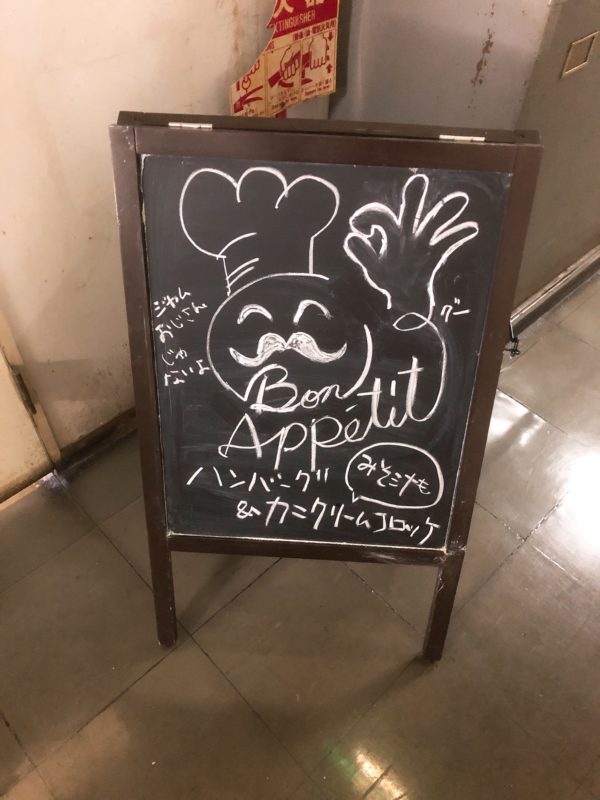 EXTINGUISHER
ジャム
おじさん
じゃ
ないよ
グー
Bon
Appétit
ハンバーグ
みそ汁も
&カニクリームコロッケ